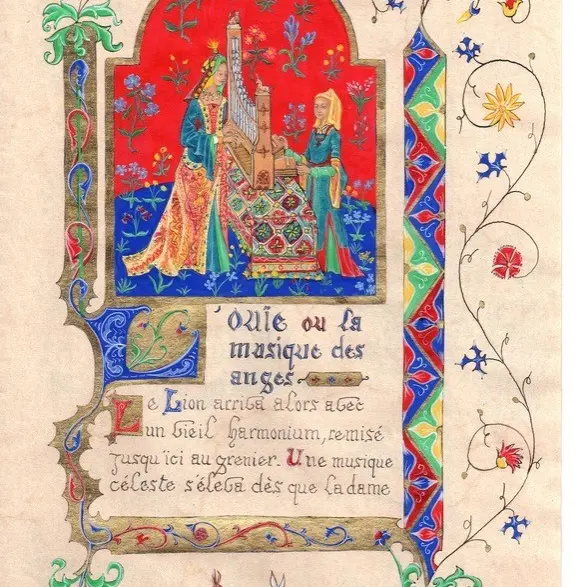 L'ouïe ou la
musique des
anges
Le Lion arriva alors avec
un vieil harmonium, remisé
jusqu'ici au grenier. Une musique
céleste s'éleva dès que la dame